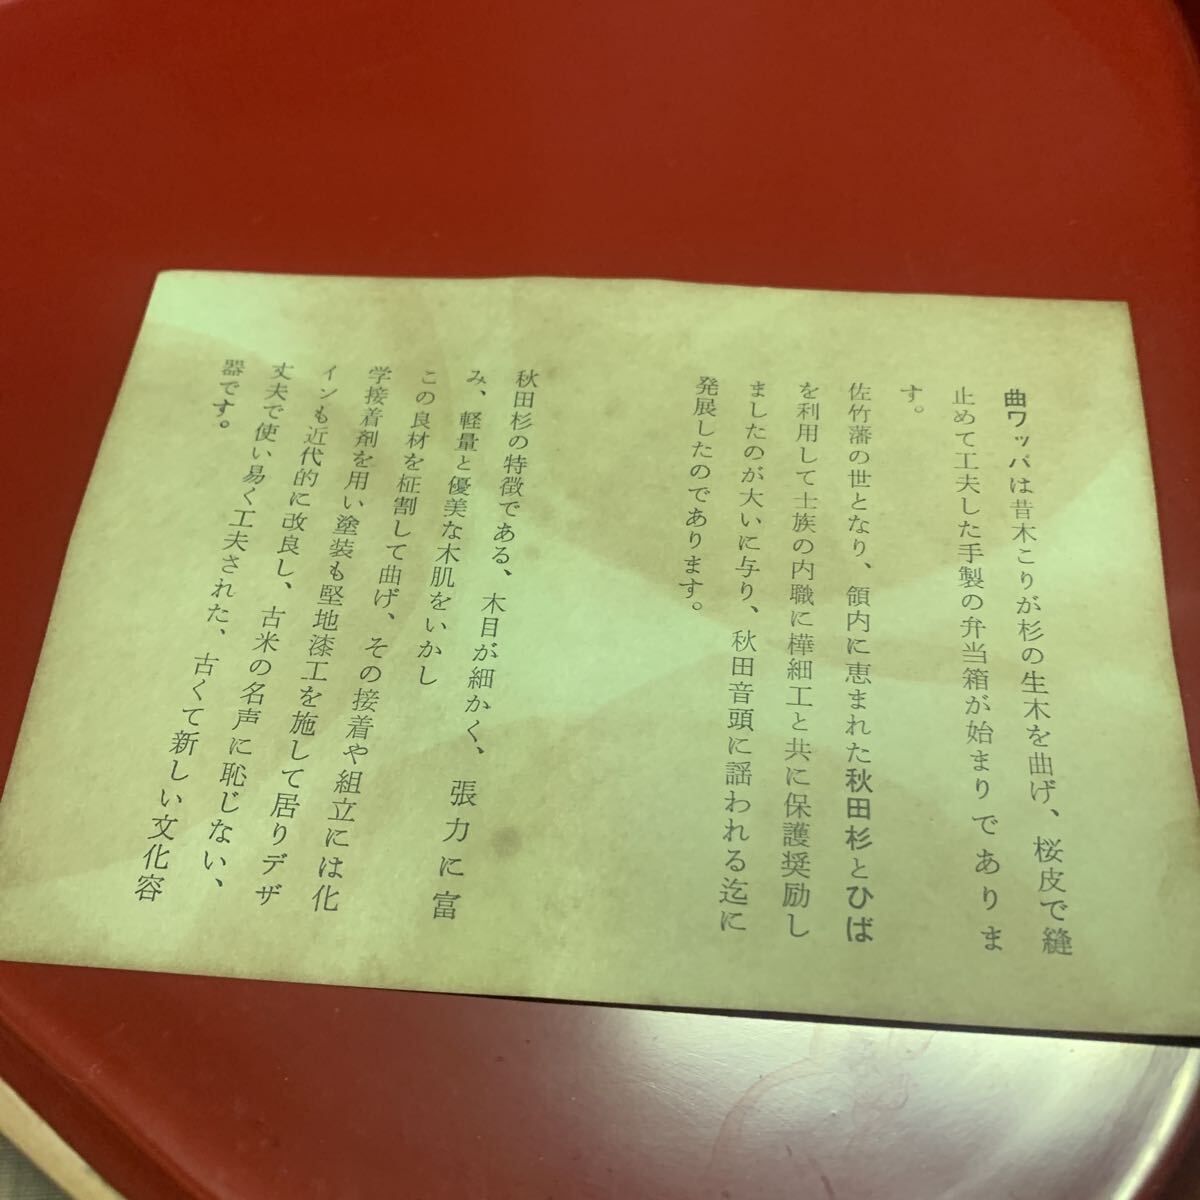 曲ワッパは昔木こりが杉の生木を曲げ、桜皮で縫
止めて工夫した手製の弁当箱が始まりでありま
す。
佐竹藩の世となり、領内に恵まれた秋田杉とひば
を利用して士族の内職に樺細工と共に保護奨励し
ましたのが大いに与り、秋田音頭に謡われる迄に
発展したのであります。
秋田杉の特徴である、木目が細かく、張力に富
み、軽量と優美な木肌をいかし
この良材を柾割して曲げ、その接着や組立には化
学接着剤を用い塗装も堅地漆工を施して居りデザ
インも近代的に改良し、古米の名声に恥じない、
丈夫で使い易く工夫された、古くて新しい文化容
器です。